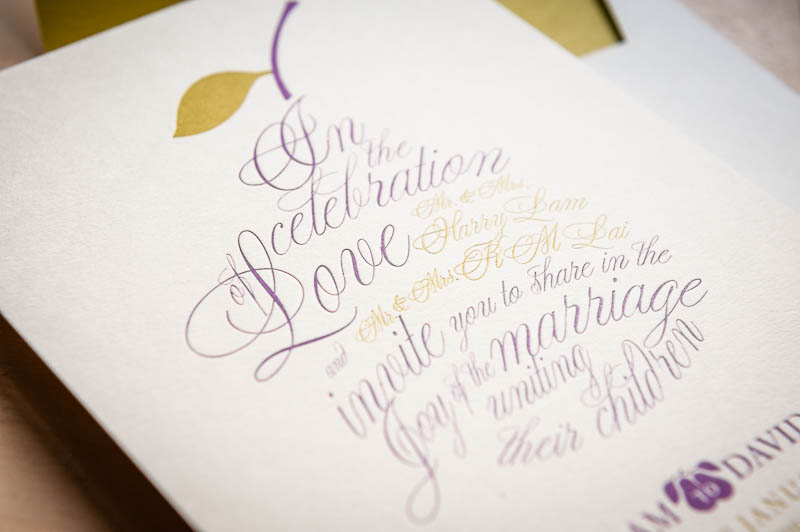 In the
celebration
of Love
Mr. & Mrs.
Harry Lam
and Mr. & Mrs. K M Lai
invite you to share in the
Joy of the marriage
uniting
their children
to DAVID